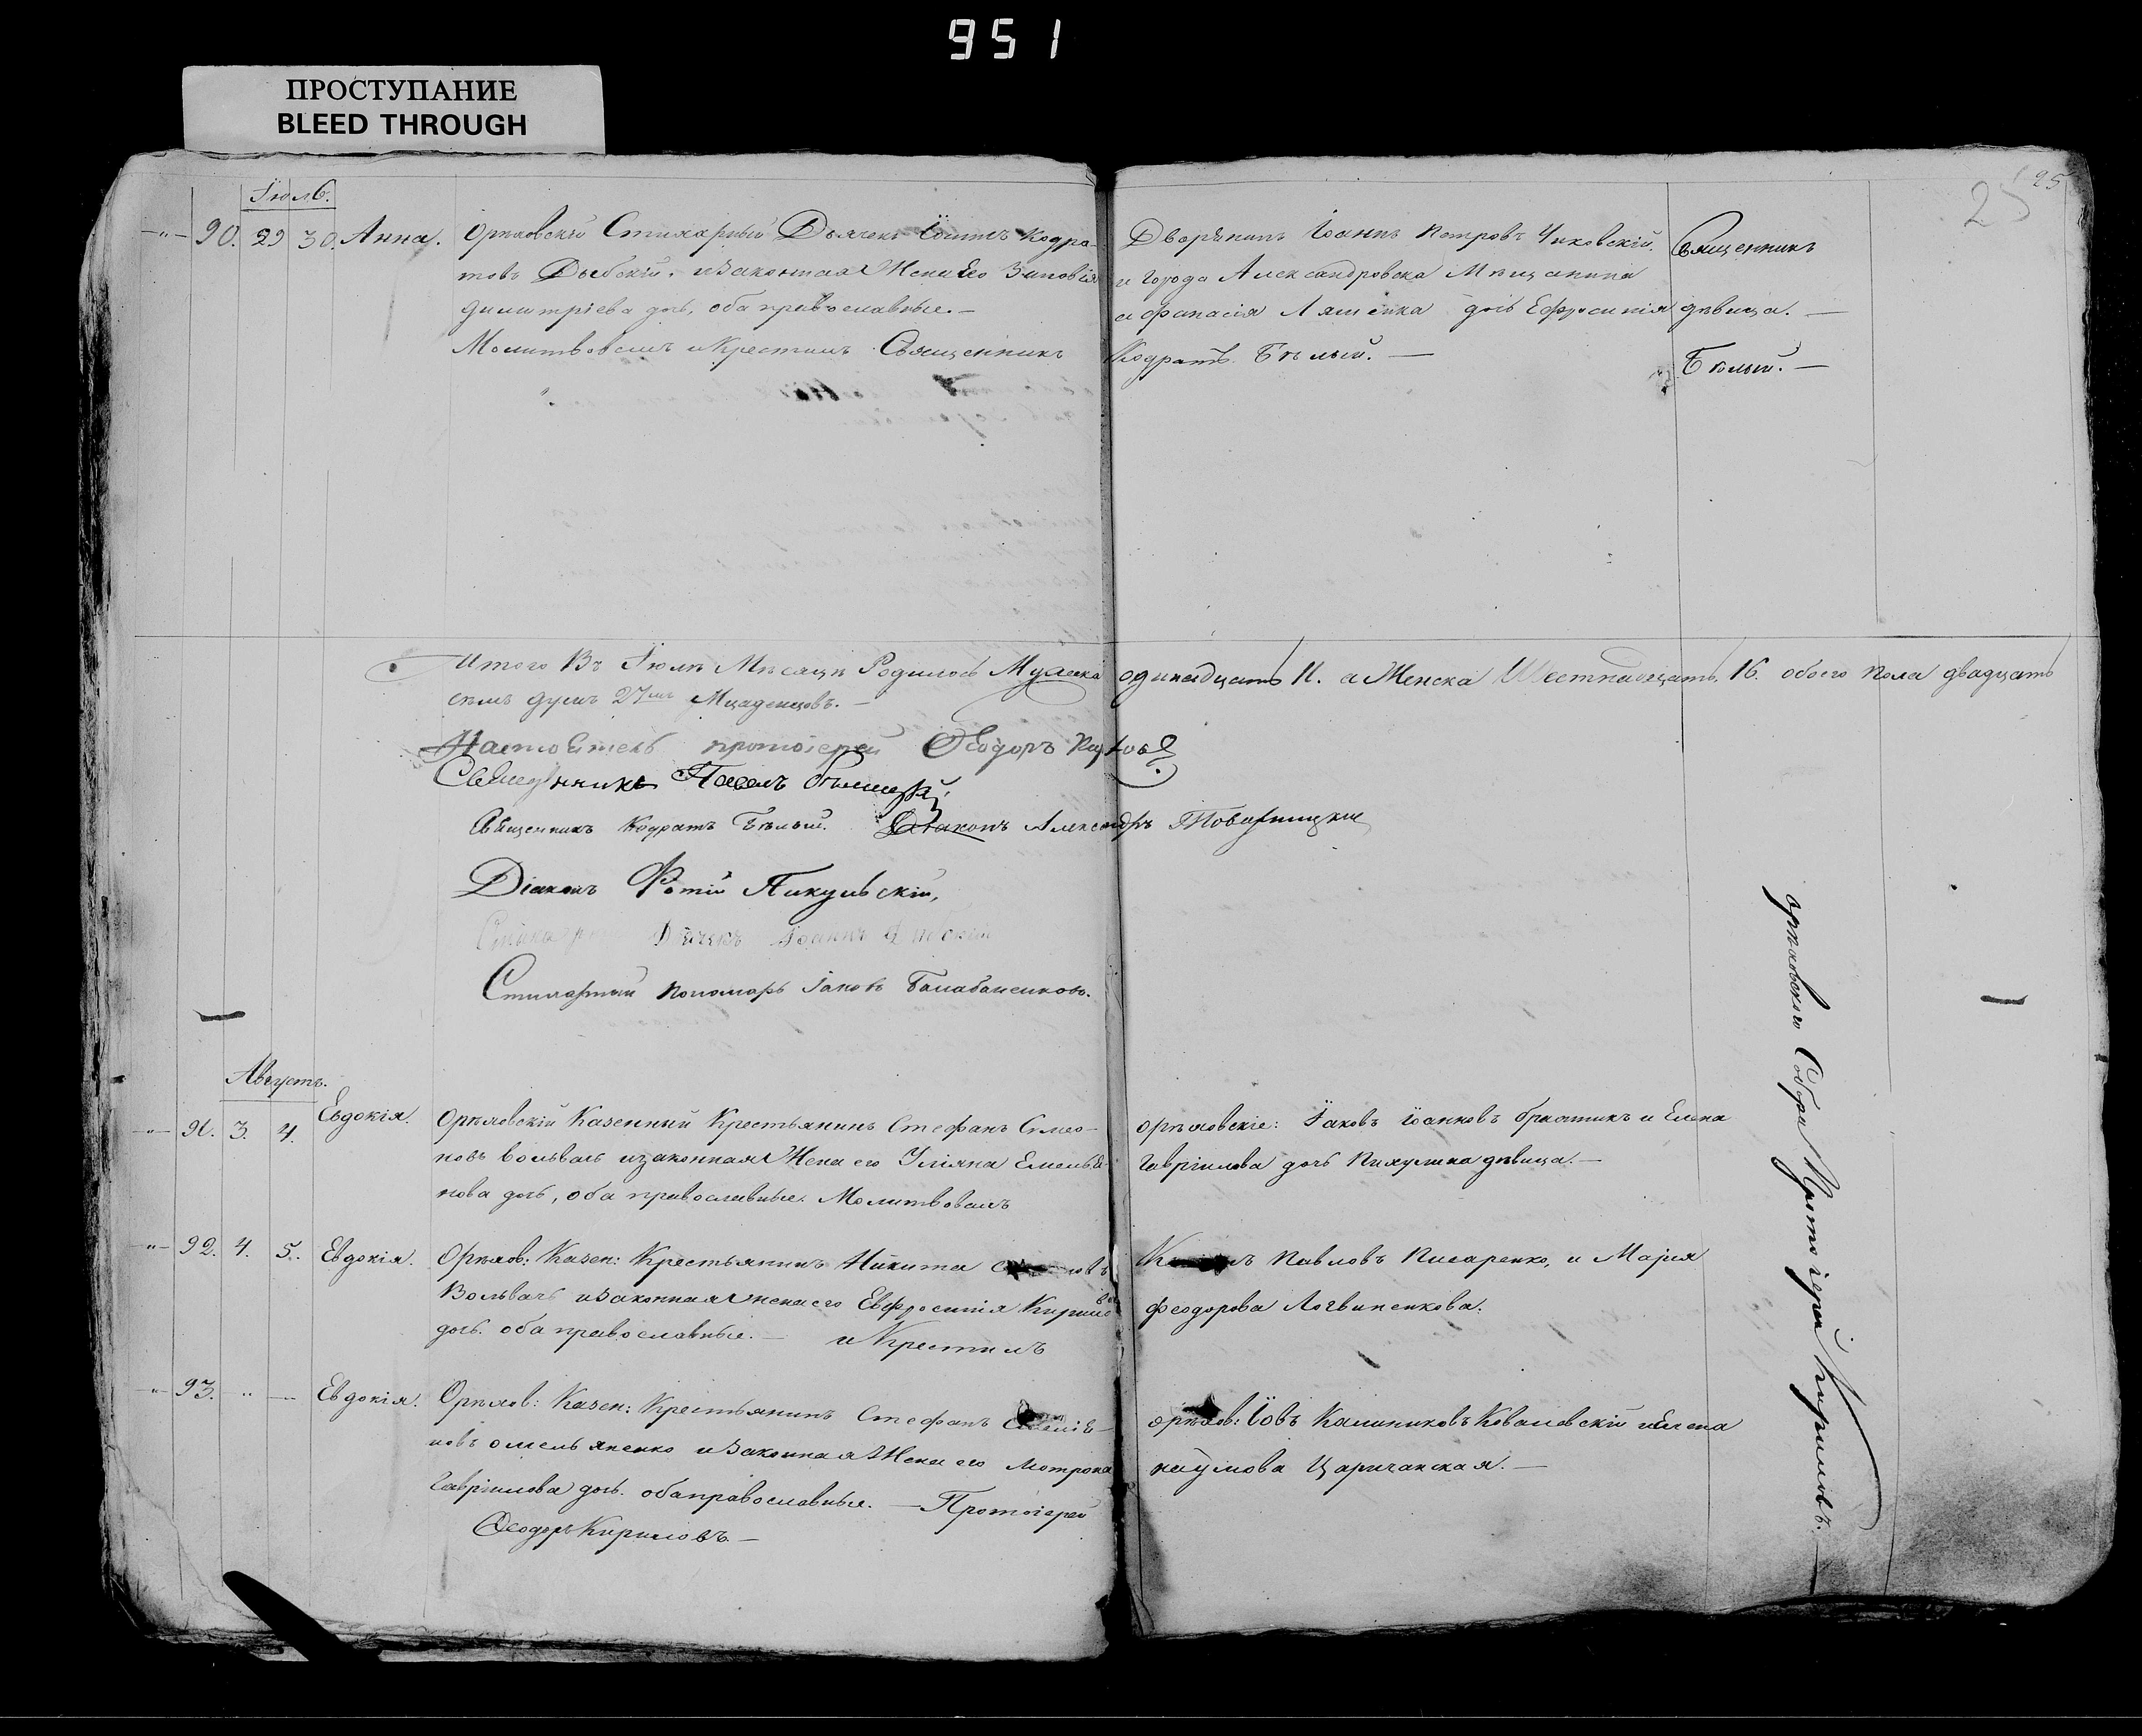 951
ПРОСТУПАНИЕ
BLEED THROUGH
25
25
Іюль.
90. 29 30. Анна. Орѣховскій Стихарный Дьячекъ Іоаннъ Кодра-
товъ Дыбскій, и законная Жена Его Зиновія
Димитріева дочь, оба православные.—
Молитвовалъ и Крестилъ Священникъ Кодратъ Бѣлый.—
Дворянинъ Іоаннъ Петровъ Чиковскій,
и города Александровска Мѣщанина
Афанасія Ляшенка дочь Ефросинія дѣвица.—
Священникъ
Бѣлый.—
Итого Въ Іюлѣ Мѣсяцѣ Родилось Мужеска одинадцать 11. а Женска Шестнадцать 16. обоего пола двадцать
семь душъ 27мь Младенцовъ.—
Настоятель протоіерей Ѳеодоръ
Священникъ Павелъ
Священникъ Кодратъ Бѣлый. Діаконъ Александръ Товарницкій
Діаконъ Фотій Пикульскій,
Стихарный Дьячекъ Іоаннъ Дыбскій
Стихарный пономарь Іаковъ Балабаненковъ.
Августъ.
91. 3. 4. Евдокія. Орѣховскій Казенный Крестьянинъ Стефанъ Симео-
новъ Вольвачь и законная Жена его Уліяна Емелья-
нова дочь, оба православные. Молитвовалъ
орѣховскіе: Іаковъ Іоанновъ братикъ и Елена
Гавріилова дочь Пихулина дѣвица.—
92. 4. 5. Евдокія. Орѣхов: Казен: Крестьянинъ Никита
Вольвачь и законная жена его Евфросинія Кирилова
дочь. оба православные.— и Крестилъ
Павловъ Писаренко, и Марія
Феодорова Логвиненкова.
93. " — Евдокія. Орѣхов: Казен: Крестьянинъ Стефанъ
новъ Омельяненко и законная Жена его Мотрона
Гавріилова дочь. оба православные.— Протоіерей
Ѳеодоръ Кириловъ.—
орѣхов: Іовъ Калиниковъ Ковалевскій и Елена
Наумова Царичанская.—
орѣховскаго Собора Протоіерей Кириловъ.—